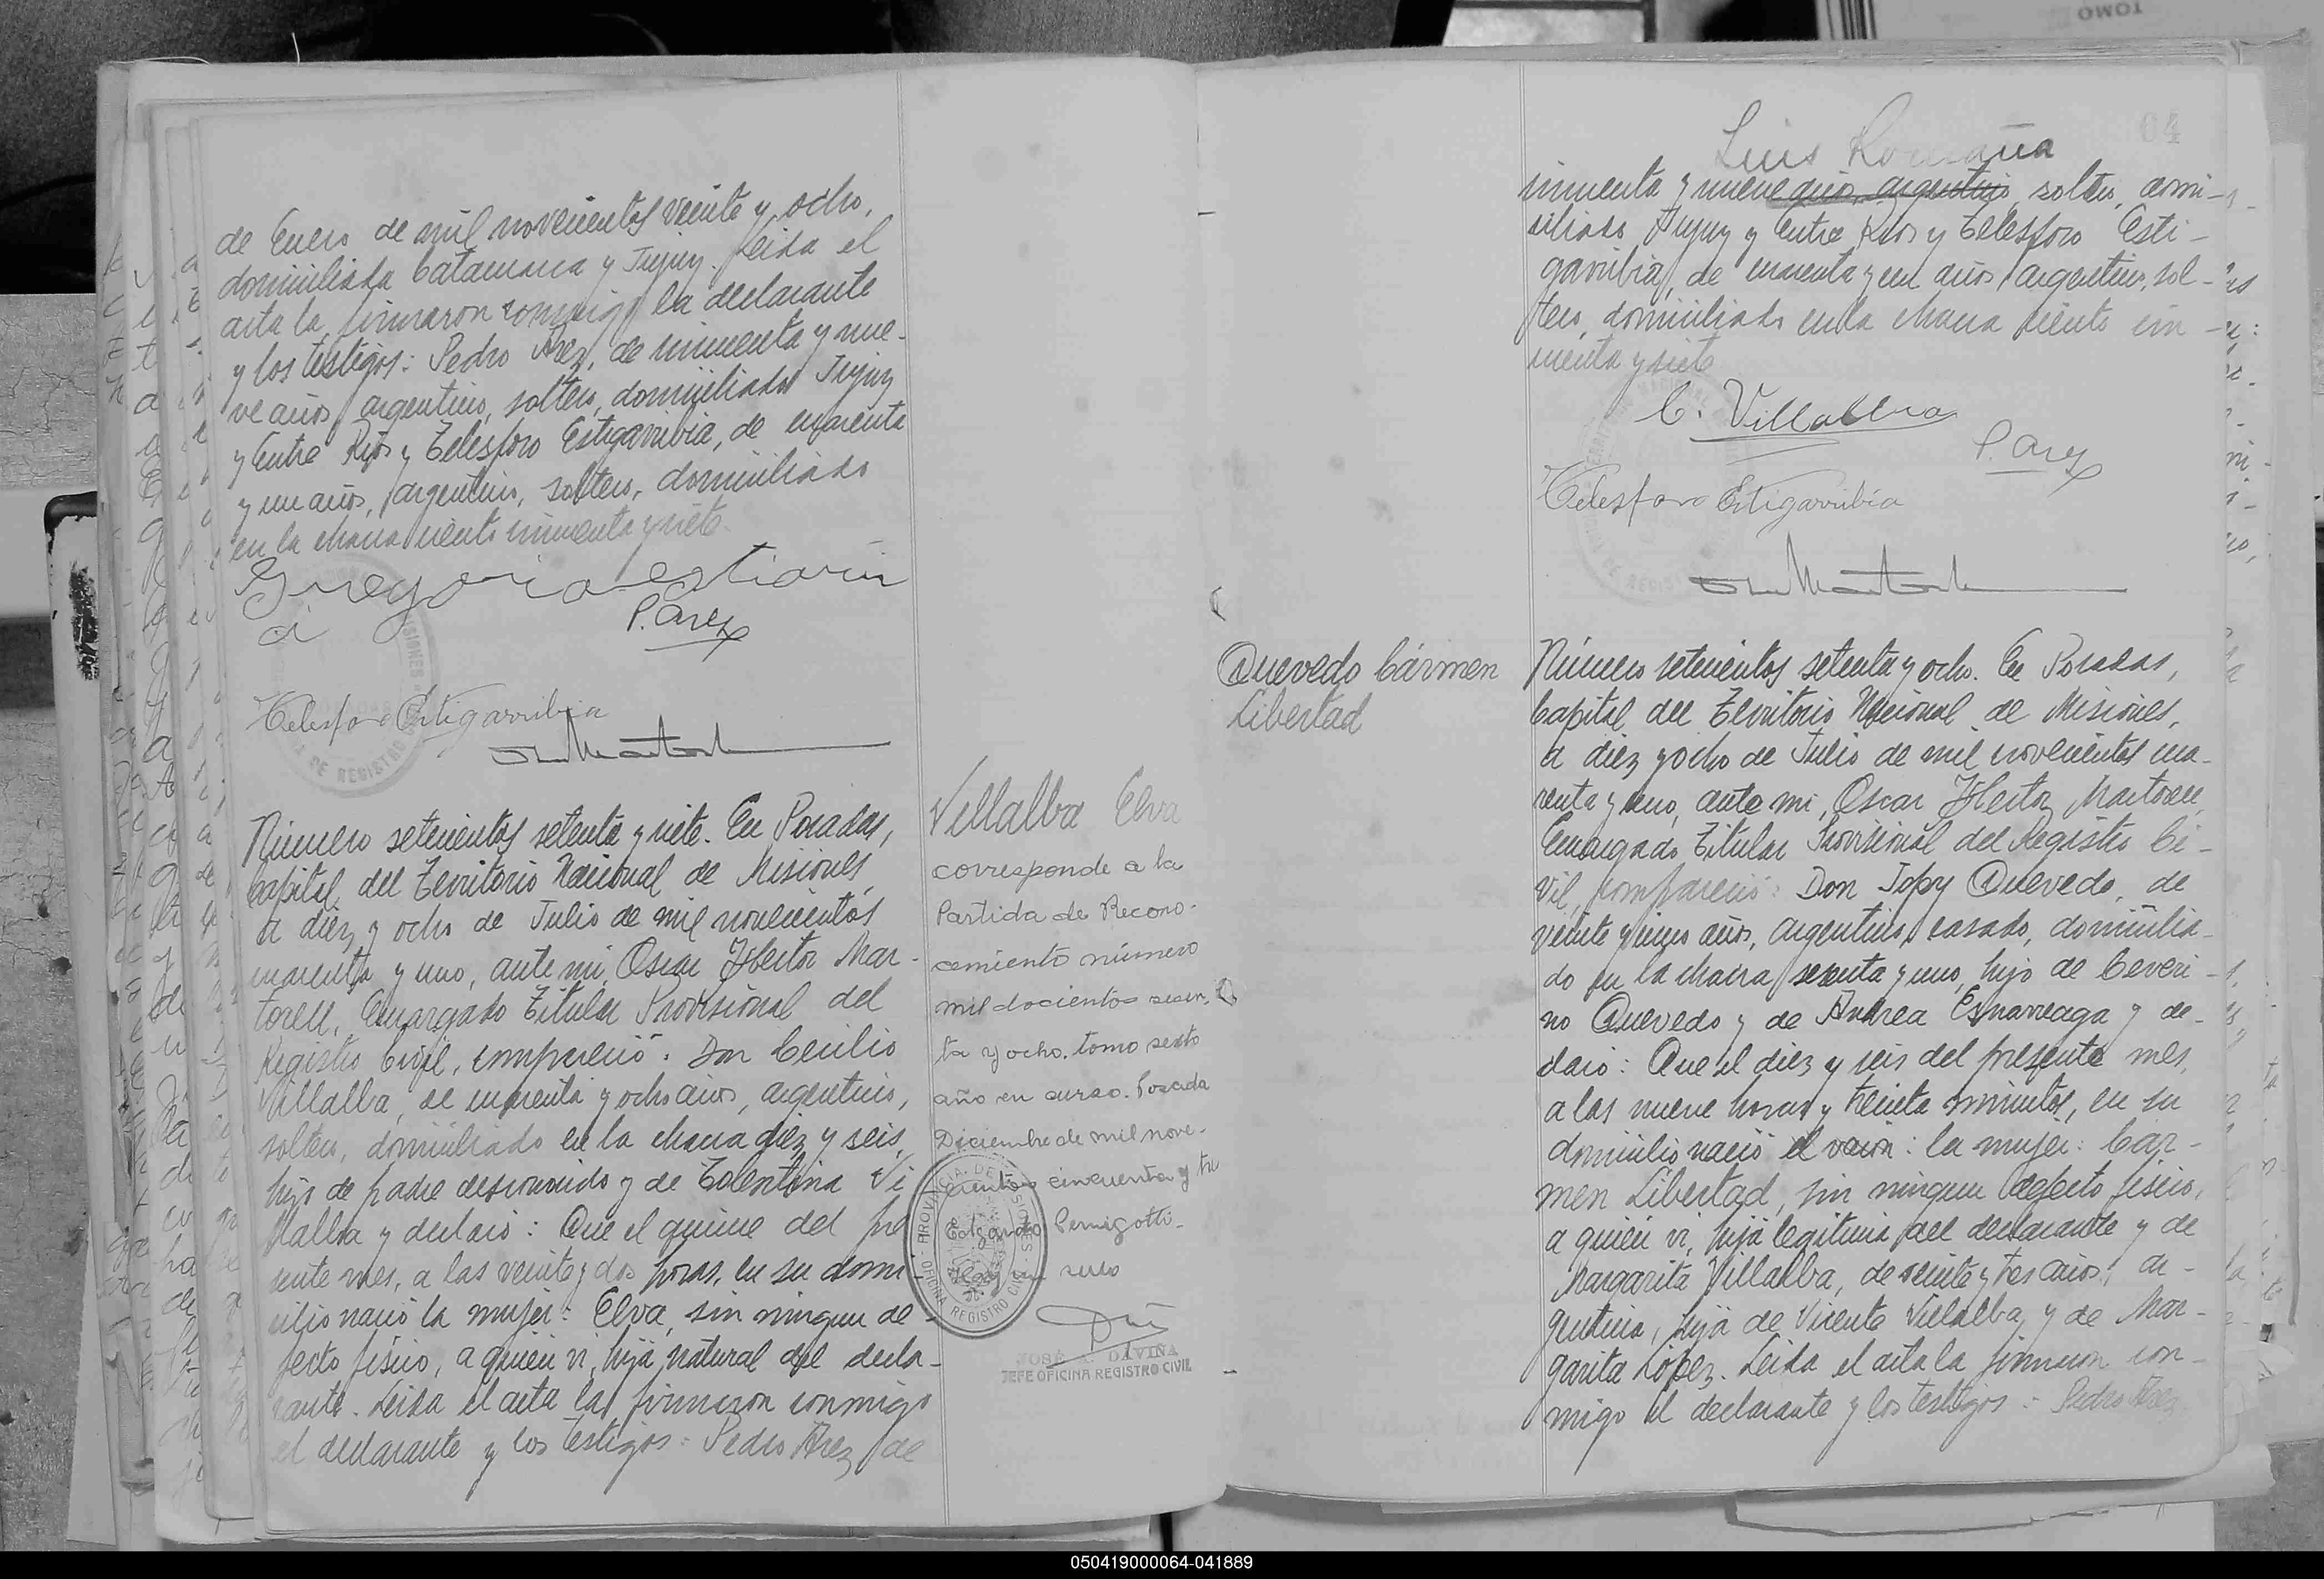 de Enero de mil novecientos veinte y ocho,
domiciliada Catamarca y Jujuy. Leida el
acta la firmaron conmigo la declarante
y los testigos: Pedro Arez, de cincuenta y nue-
ve años, argentino, soltero, domiciliado Jujuy
y Entre Rios y Telesforo Estigarribia, de cuarenta
y un años, argentino, soltero, domiciliado
en la chacra ciento cincuenta y siete.
Gregoria
P. Arez
Telesforo Estigarribia
Número setecientos setenta y siete. En Posadas,
Capital del Territorio Nacional de Misiones,
a diez y ocho de Julio de mil novecientos
cuarenta y uno, ante mi, Oscar Hector Mar-
torell, Encargado Titular Provisional del
Registro Civil, compareció: Don Cecilio
Villalba, de cuarenta y ocho años, argentino,
soltero, domiciliado en la chacra diez y seis,
hijo de padre desconocido y de Tolentina Vi-
llalba y declaró: Que el quince del pre
sente mes, a las veinte y dos horas, en su domi-
cilio nació la mujer: Elva, sin ningun de-
fecto fisico, a quien vi, hija natural del decla-
rante. Leida el acta la firmaron conmigo
el declarante y los testigos: Pedro Arez, de
Villalba Elva
corresponde a la
Partida de Recono-
cimiento número
mil docientos sesen-
ta y ocho. tomo sexto
año en curso. Posada
Diciembre de mil nove-
cientos cincuenta y tre
Pernigotti-
PROVINCIA DE MISIONES
OFICINA REGISTRO CIVIL
JOSÉ A. DAVIÑA
JEFE OFICINA REGISTRO CIVIL
64
Luis Romaña
cincuenta y nueve años, argentino, soltero, domi-
ciliado Jujuy y Entre Rios y Telesforo Esti-
garribia, de cuarenta y un años, argentino, sol-
tero, domiciliado en la chacra ciento cin-
cuenta y siete
C. Villalba
P. Arez
Telesforo Estigarribia
Quevedo Cármen
Libertad
Número setecientos setenta y ocho. En Posadas,
Capital del Territorio Nacional de Misiones,
a diez y ocho de Julio de mil novecientos cua-
renta y uno, ante mi, Oscar Hector Martorell,
Encargado Titular Provisional del Registro Ci-
vil, compareció: Don Quevedo, de
veinte y cinco años, argentino, casado, domicilia-
do en la chacra sesenta y uno, hijo de Ceveri-
no Quevedo y de Andrea Esmarreaga y de-
claró: Que el diez y seis del presente mes,
a las nueve horas y treinta minutos, en su
domicilio nació el varon: la mujer: Car-
men Libertad, sin ningun defecto fisico,
a quien vi, hija legitima del declarante y de
Margarita Villalba, de veinte y tres años, ar-
gentina, hija de Vicente Villalba y de Mar-
garita López. Leida el acta la firmaron con-
migo el declarante y los testigos: Pedro Arez
TOMO
050419000064-041889